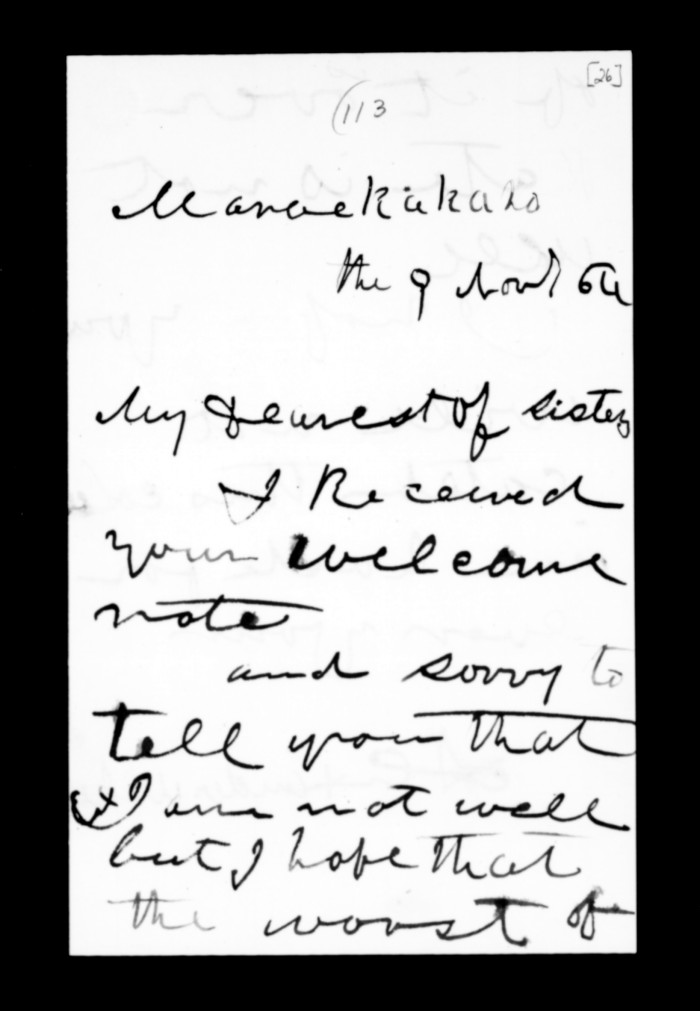 [26]
(113
Maraekakaho
the 9 Novr
My Dearest of Sister
I Received
your welcome
note
and sorry to
tell you that
I am not well
but I hope that
the worst of